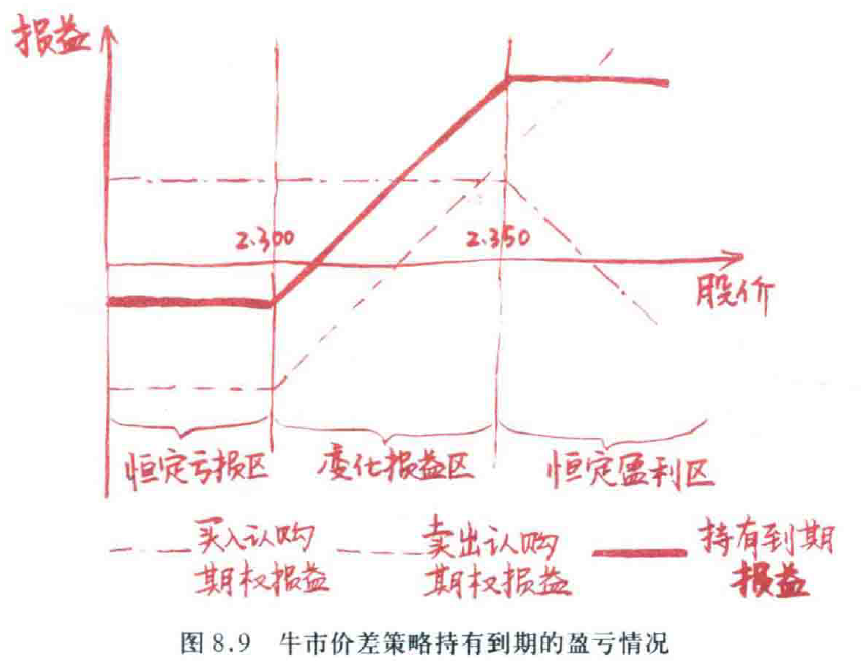 损益
2.300
2.350
股价
恒定亏损区
变化损益区
恒定盈利区
买入认购
期权损益
卖出认购
期权损益
持有到期
损益
图 8.9 牛市价差策略持有到期的盈亏情况